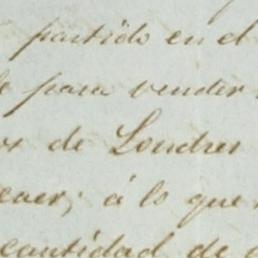 partido en el
para vender
de Londres
á lo que
cantidad de